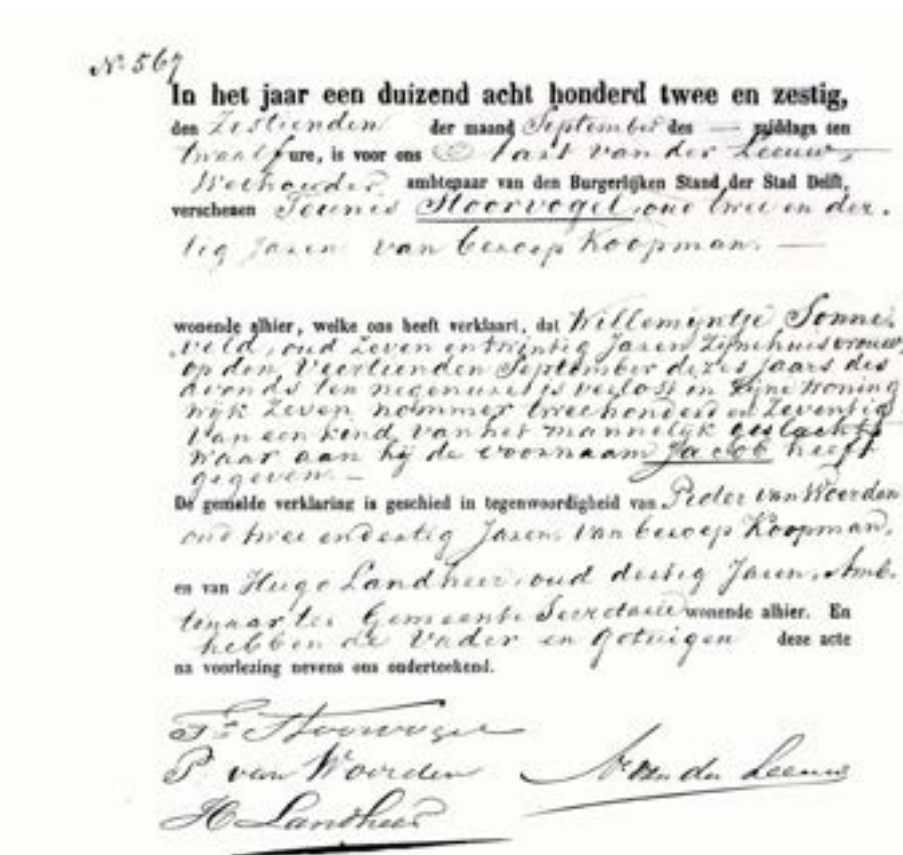 No 567
In het jaar een duizend acht honderd twee en zestig,
den Zestienden der maand September des — middags ten
twaalf ure, is voor ons van der Leeuw,
Wethouder ambtenaar van den Burgerlijken Stand der Stad Delft,
verschenen Teunis Stoorvogel, oud twee en der-
tig Jaren van beroep Koopman. —
wonende alhier, welke ons heeft verklaart, dat Willemyntje Sonne-
veld, oud Zeven en twintig Jaren Zijne huisvrouw,
op den Veertienden September dezes jaars des
avonds ten negen ure is verlost in Zijne woning
wijk Zeven nommer twee honderd en Zeventig
van een kind van het mannelijk geslacht
waar aan hij de voornaam Jacob heeft
gegeven. —
De gemelde verklaring is geschied in tegenwoordigheid van Pieter van Woerden
oud twee en dertig Jaren, van beroep Koopman,
en van Hugo Landheer, oud dertig Jaren, Amb-
tenaar ter Gemeente Secretarie wonende alhier. En
hebben de Vader en Getuigen deze acte
na voorlezing nevens ons onderteekend.
Ts Stoorvogel
P. van Woerden
van der Leeuw
H Landheer